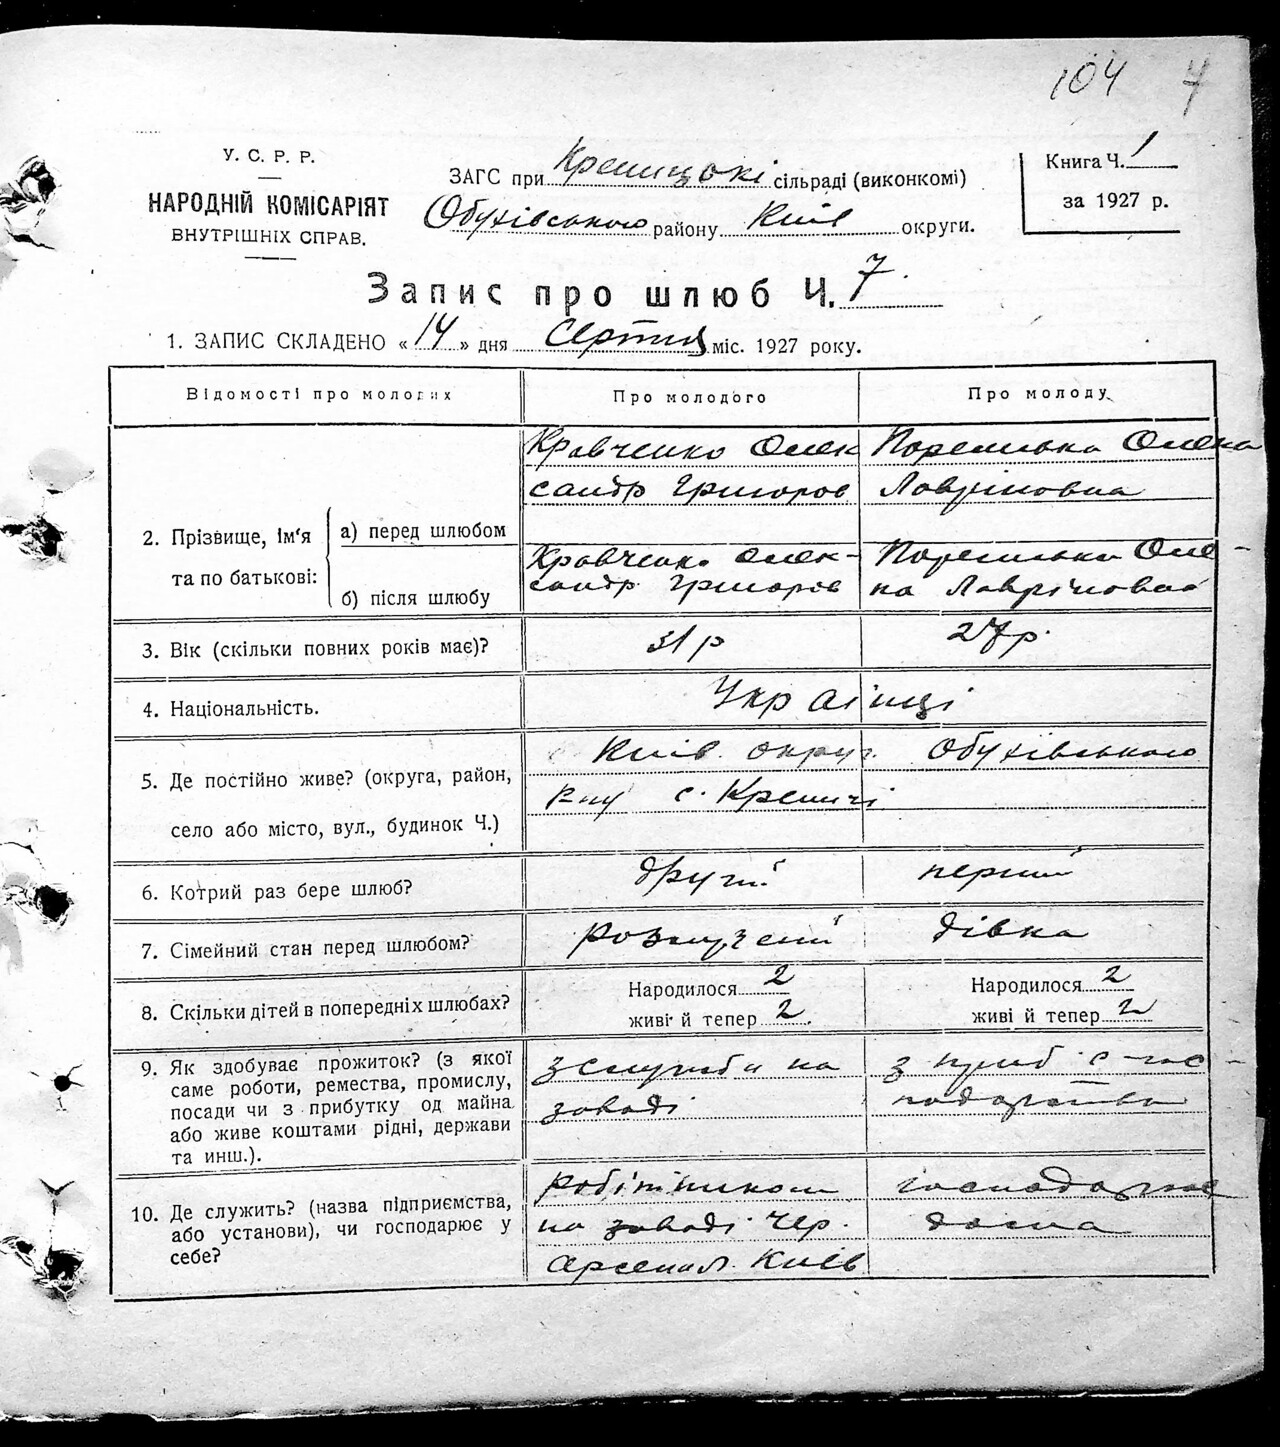 104 7
У. С. Р. Р.
НАРОДНІЙ КОМІСАРІЯТ
ВНУТРІШНІХ СПРАВ.
ЗАГС при Креницькі сільраді (виконкомі)
Обухівського району Київ округи.
Книга Ч. 1
за 1927 р.
Запис про шлюб Ч. 7
1. ЗАПИС СКЛАДЕНО « 14 » дня Серпня міс. 1927 року.
Відомості про молодих
Про молодого
Про молоду
2. Прізвище, ім'я та по батькові:
а) перед шлюбом
Кравченко Олек
сандр Григоров
Олена
Лавріновна
б) після шлюбу
Кравченко Олек-
сандр Григоров
Оле-
на Лавріновна
3. Вік (скільки повних років має)?
31 р
27 р.
4. Національність.
Українці
5. Де постійно живе? (округа, район,
село або місто, вул., будинок Ч.)
Київ. округ. Обухівського
р-ну с. Креничі
6. Котрий раз бере шлюб?
другий
перший
7. Сімейний стан перед шлюбом?
розлучений
дівка
8. Скільки дітей в попередніх шлюбах?
Народилося 2
живі й тепер 2.
Народилося 2
живі й тепер 2
9. Як здобуває прожиток? (з якої
саме роботи, ремества, промислу,
посади чи з прибутку од майна
або живе коштами рідні, держави
та инш.).
з служби на
заводі
з приб с-гос-
подарства
10. Де служить? (назва підприємства,
або установи), чи господарює у
себе?
робітником
на заводі Чер.
Арсенал Київ
господарює
дома